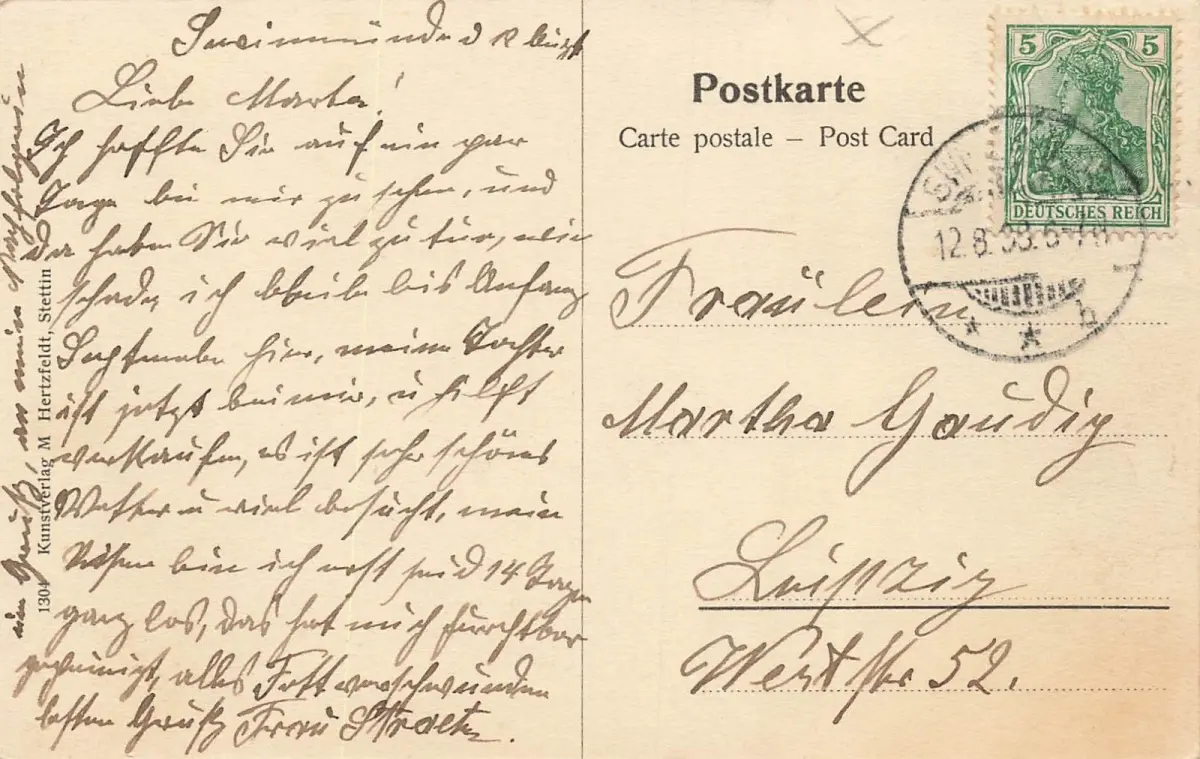 Swinemünde d
Liebe Marta!
Ich hoffte Sie auf ein par
Tage bei mir zu sehen, und
da haben Sie viel zu tun, wie
schade, ich bleibe bis Anfang
hier, meine Tochter
ist jetzt bei mir, u hilft
verkaufen, es ist sehr schönes
Wetter u viel besucht, mein
bin ich erst seid 14 Tagen
ganz los, das hat mich furchtbar
gepeinigt, alles Fett verschwunden
besten Gruß Frau
Gruß, an mein
1304 Kunstverlag M Hertzfeldt, Stettin
Postkarte
Carte postale – Post Card
5 5
DEUTSCHES REICH
12.8.
* * b
Fräulein
Martha Gaudig
Leipzig
Weststr 52.